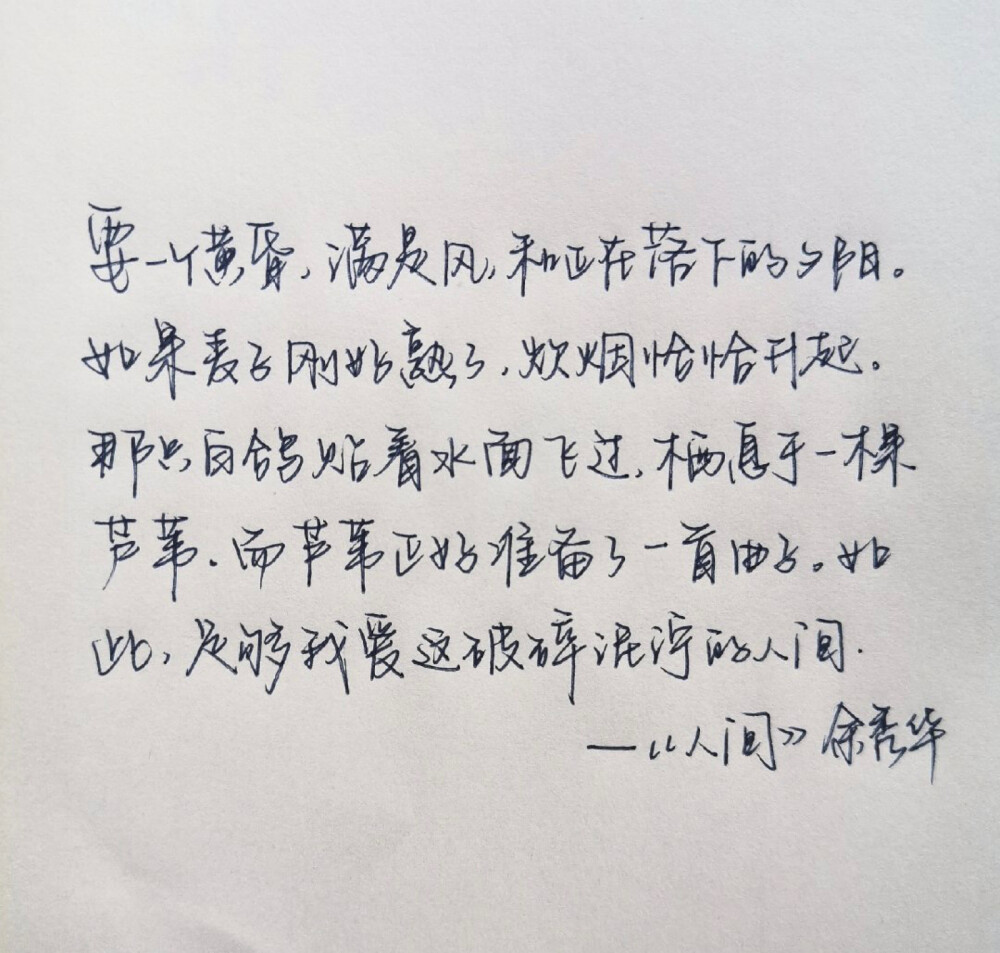 要一个黄昏，满是风，和正在落下的夕阳。
如果麦子刚好熟了，炊烟恰恰升起。
那只白鸽贴着水面飞过，栖息于一棵
芦苇，而芦苇正好准备了一首曲子。如
此，足够我爱这破碎泥泞的人间.
—《人间》余秀华